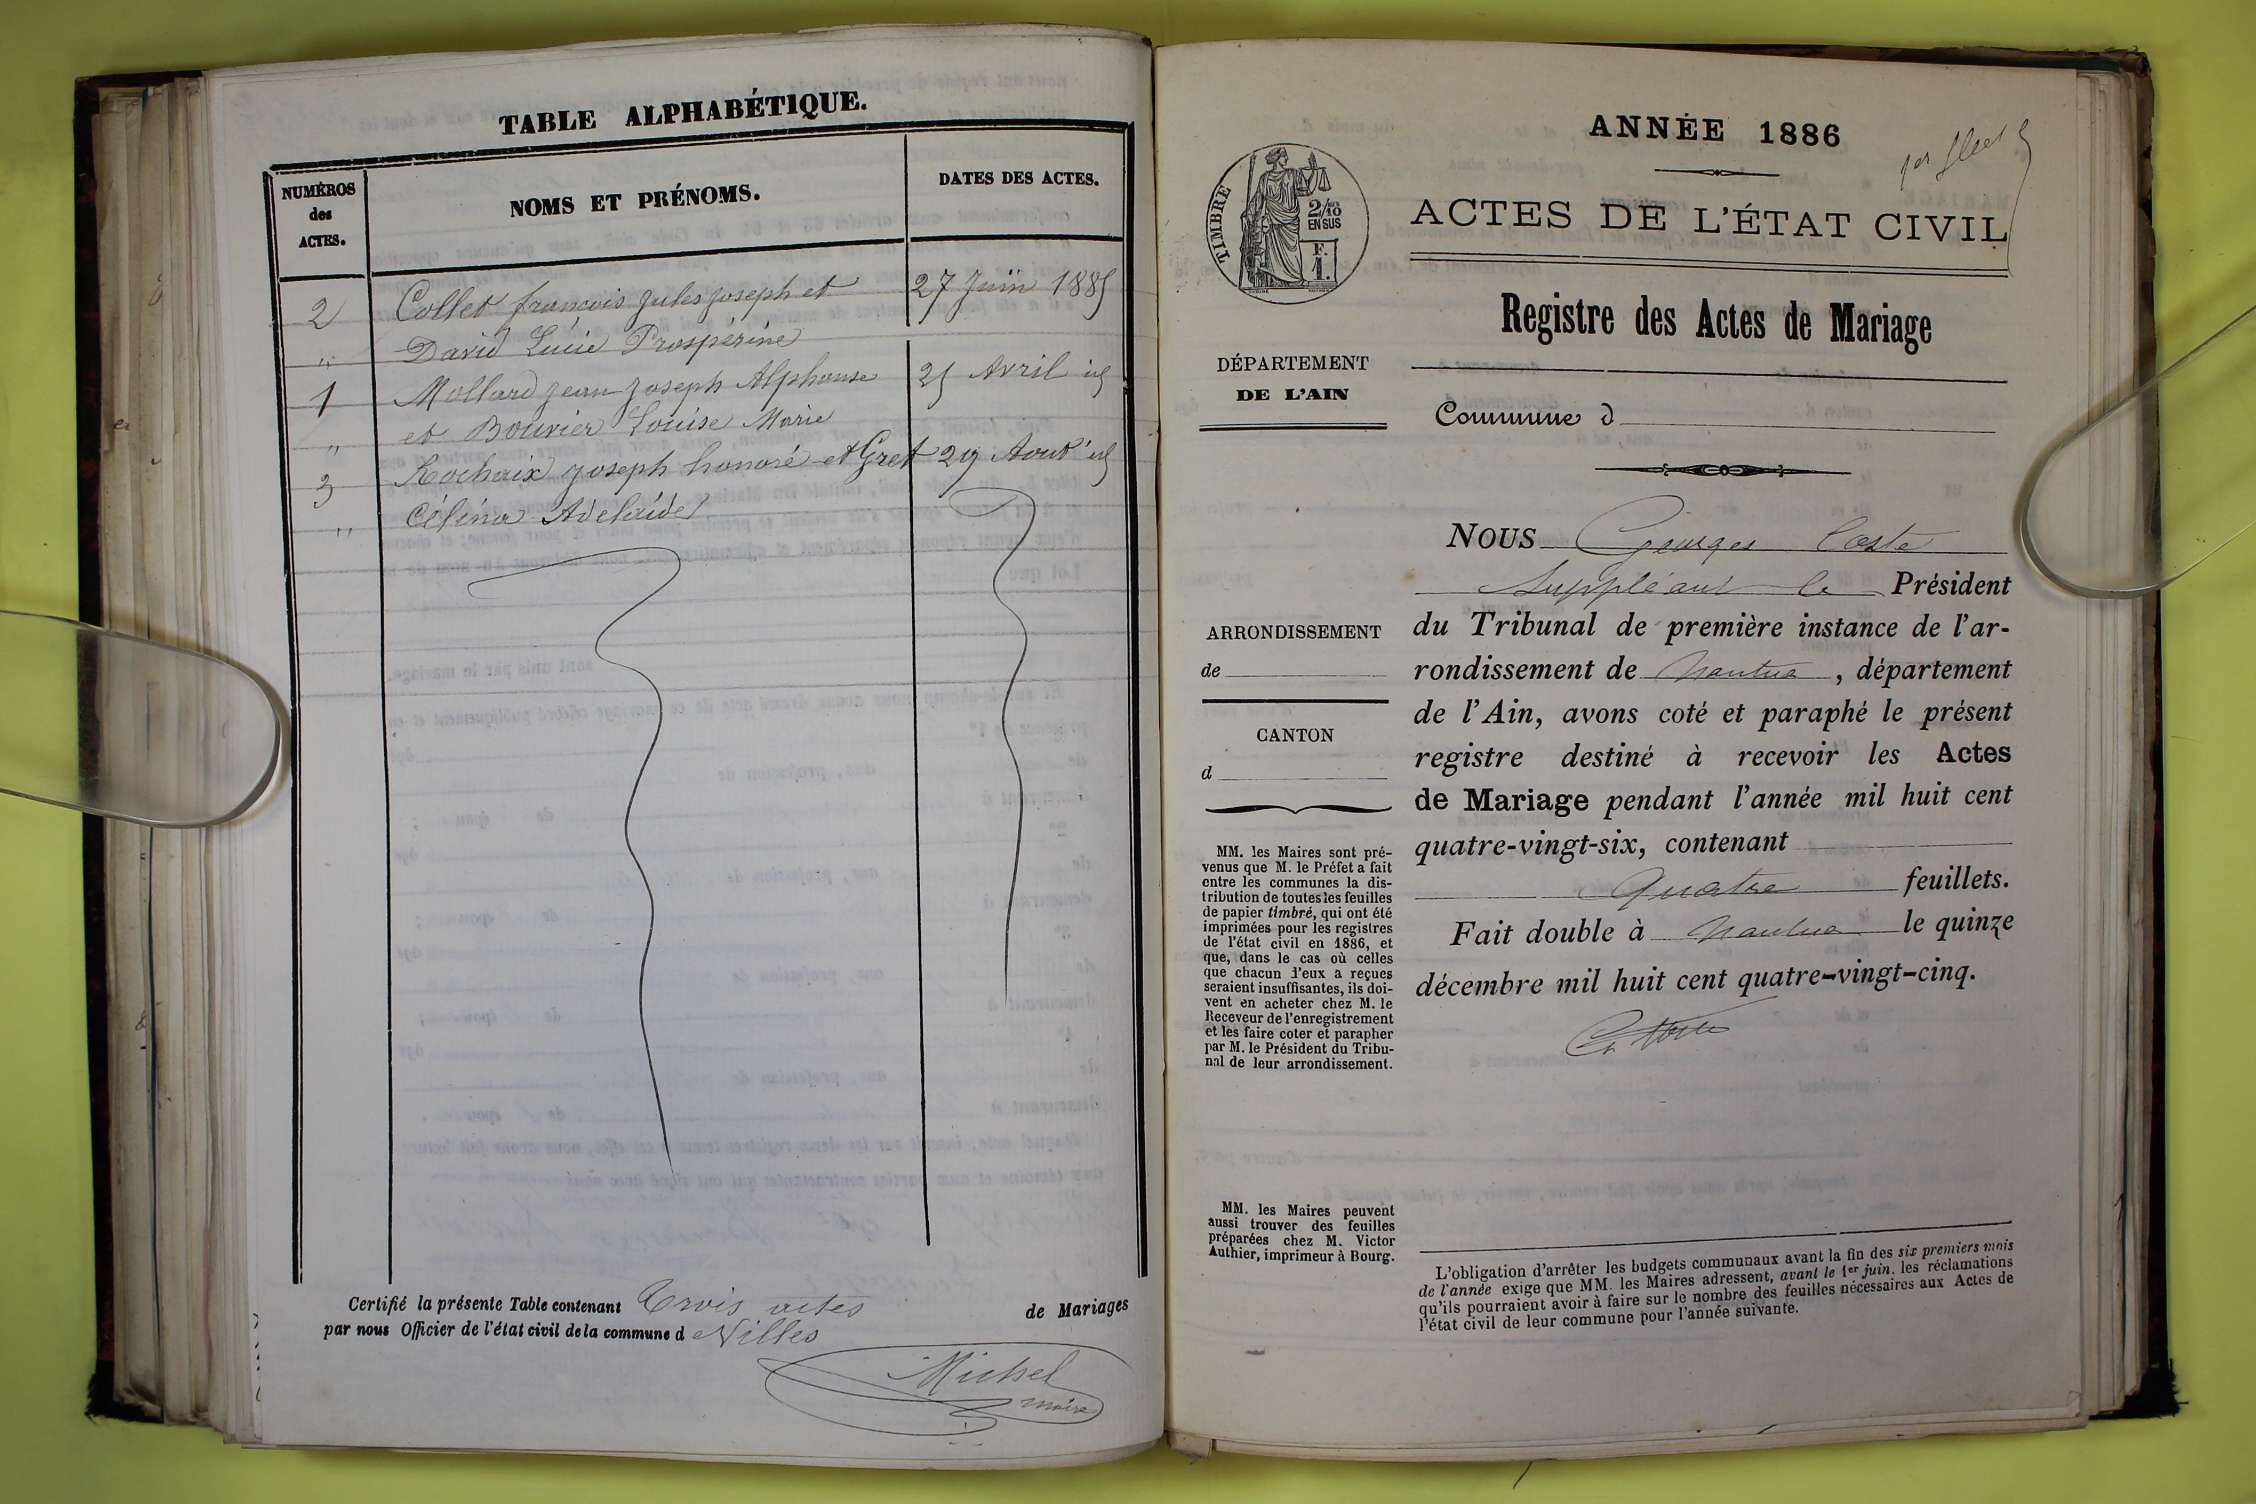 TABLE ALPHABÉTIQUE.
NUMÉROS
des
ACTES.
NOMS ET PRÉNOMS.
DATES DES ACTES.
2 Collet françois Jules Joseph et 27 Juin 1885
,, David Lucie Prospérine
1 Mollard Jean Joseph Alphonse 25 Avril id
,, et Bouvier Louise Marie
3 Rochaix Joseph honoré et Gret 29 Aout id
,, Célina Adelaïde
Certifié la présente Table contenant Trois actes de Mariages
par nous Officier de l'état civil de la commune d e Villes
Michel
maire
ANNÉE 1886
1er
ACTES DE L'ÉTAT CIVIL
TIMBRE
2/10
EN SUS
F.
1.
Registre des Actes de Mariage
DÉPARTEMENT
DE L'AIN
Commune d
ARRONDISSEMENT
de
CANTON
d
MM. les Maires sont pré-
venus que M. le Préfet a fait
entre les communes la dis-
tribution de toutes les feuilles
de papier timbré, qui ont été
imprimées pour les registres
de l'état civil en 1886, et
que, dans le cas où celles
que chacun d'eux a reçues
seraient insuffisantes, ils doi-
vent en acheter chez M. le
Receveur de l'enregistrement
et les faire coter et parapher
par M. le Président du Tribu-
nal de leur arrondissement.
MM. les Maires peuvent
aussi trouver des feuilles
préparées chez M. Victor
Authier, imprimeur à Bourg.
NOUS Georges Coste
Suppléant le Président
du Tribunal de première instance de l'ar-
rondissement de Nantua, département
de l'Ain, avons coté et paraphé le présent
registre destiné à recevoir les Actes
de Mariage pendant l'année mil huit cent
quatre-vingt-six, contenant
Quatre feuillets.
Fait double à Nantua le quinze
décembre mil huit cent quatre-vingt-cinq.
L'obligation d'arrêter les budgets communaux avant la fin des six premiers mois
de l'année exige que MM. les Maires adressent, avant le 1er juin, les réclamations
qu'ils pourraient avoir à faire sur le nombre des feuilles nécessaires aux Actes de
l'état civil de leur commune pour l'année suivante.